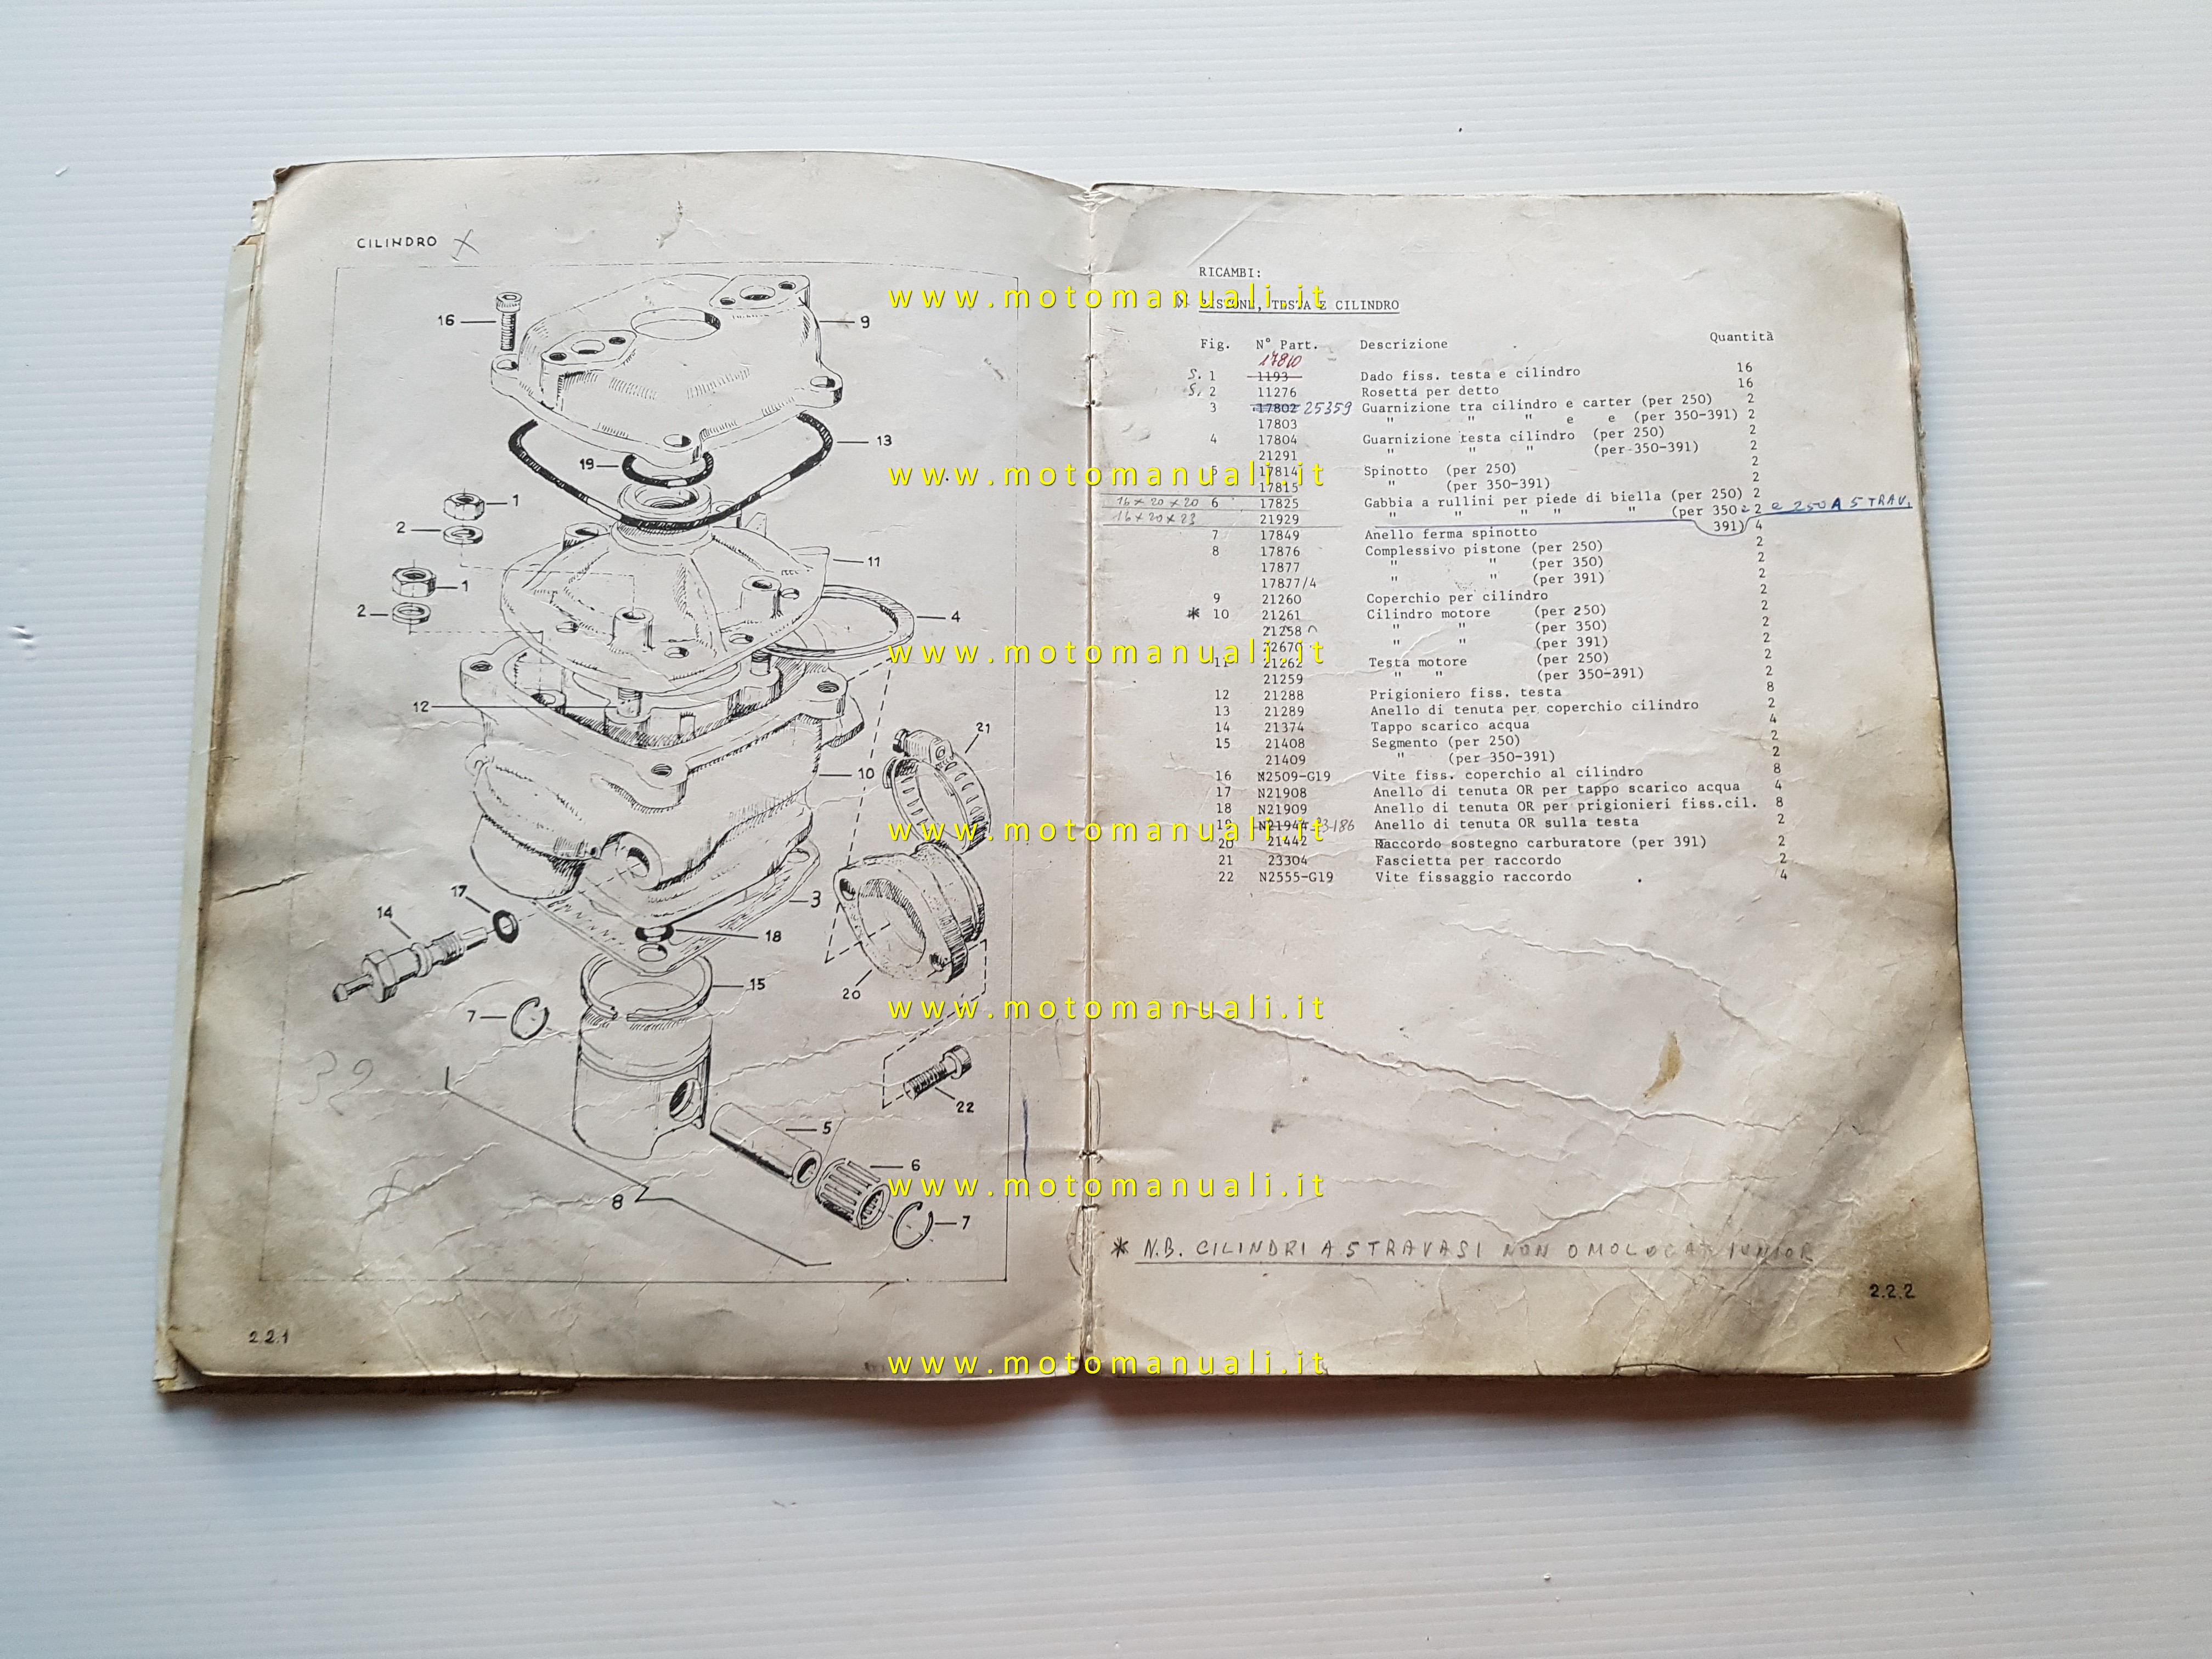 CILINDRO X
16
9
13
19
1
2
11
1
2
4
12
21
10
17
3
14
18
15
20
7
22
5
6
8
7
32
2.2.1
RICAMBI:
PISTONE, TESTA E CILINDRO
Fig. N° Part. Descrizione Quantità
17810
S. 1 1193 Dado fiss. testa e cilindro 16
S. 2 11276 Rosetta per detto 16
3 17802 25359 Guarnizione tra cilindro e carter (per 250) 2
17803 " " e e (per 350-391) 2
4 17804 Guarnizione testa cilindro (per 250) 2
21291 " " " (per 350-391) 2
5 17814 Spinotto (per 250) 2
17815 " (per 350-391) 2
16 x 20 x 20 6 17825 Gabbia a rullini per piede di biella (per 250) 2
16 x 20 x 23 21929 " " " " " (per 350 e 2 e 250 A 5 TRAV.
391)
7 17849 Anello ferma spinotto 4
8 17876 Complessivo pistone (per 250) 2
17877 " " (per 350) 2
17877/4 " " (per 391) 2
9 21260 Coperchio per cilindro 2
* 10 21261 Cilindro motore (per 250) 2
21258 " " (per 350) 2
22670 " " (per 391) 2
11 21262 Testa motore (per 250) 2
21259 " " (per 350-391) 2
12 21288 Prigioniero fiss. testa 8
13 21289 Anello di tenuta per coperchio cilindro 2
14 21374 Tappo scarico acqua 4
15 21408 Segmento (per 250) 2
21409 " (per 350-391) 2
16 N2509-G19 Vite fiss. coperchio al cilindro 8
17 N21908 Anello di tenuta OR per tappo scarico acqua 4
18 N21909 Anello di tenuta OR per prigionieri fiss.cil. 8
19 N21944 Anello di tenuta OR sulla testa 2
20 21442 Raccordo sostegno carburatore (per 391) 2
21 23304 Fascietta per raccordo 2
22 N2555-G19 Vite fissaggio raccordo 4
* N.B. CILINDRI A 5 TRAVASI NON OMOLOGAT JUNIOR
2.2.2
www.motomanuali.it
www.motomanuali.it
www.motomanuali.it
www.motomanuali.it
www.motomanuali.it
www.motomanuali.it
www.motomanuali.it